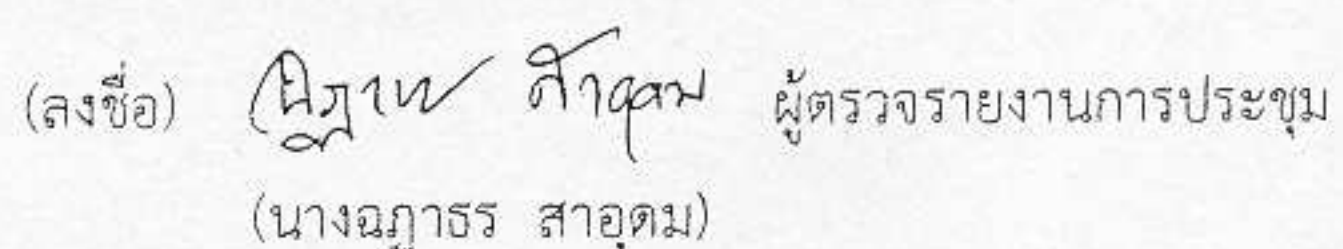 (ลงชื่อ) ฉฎาธร สาอุดม ผู้ตรวจรายงานการประชุม
(นางฉฎาธร สาอุดม)